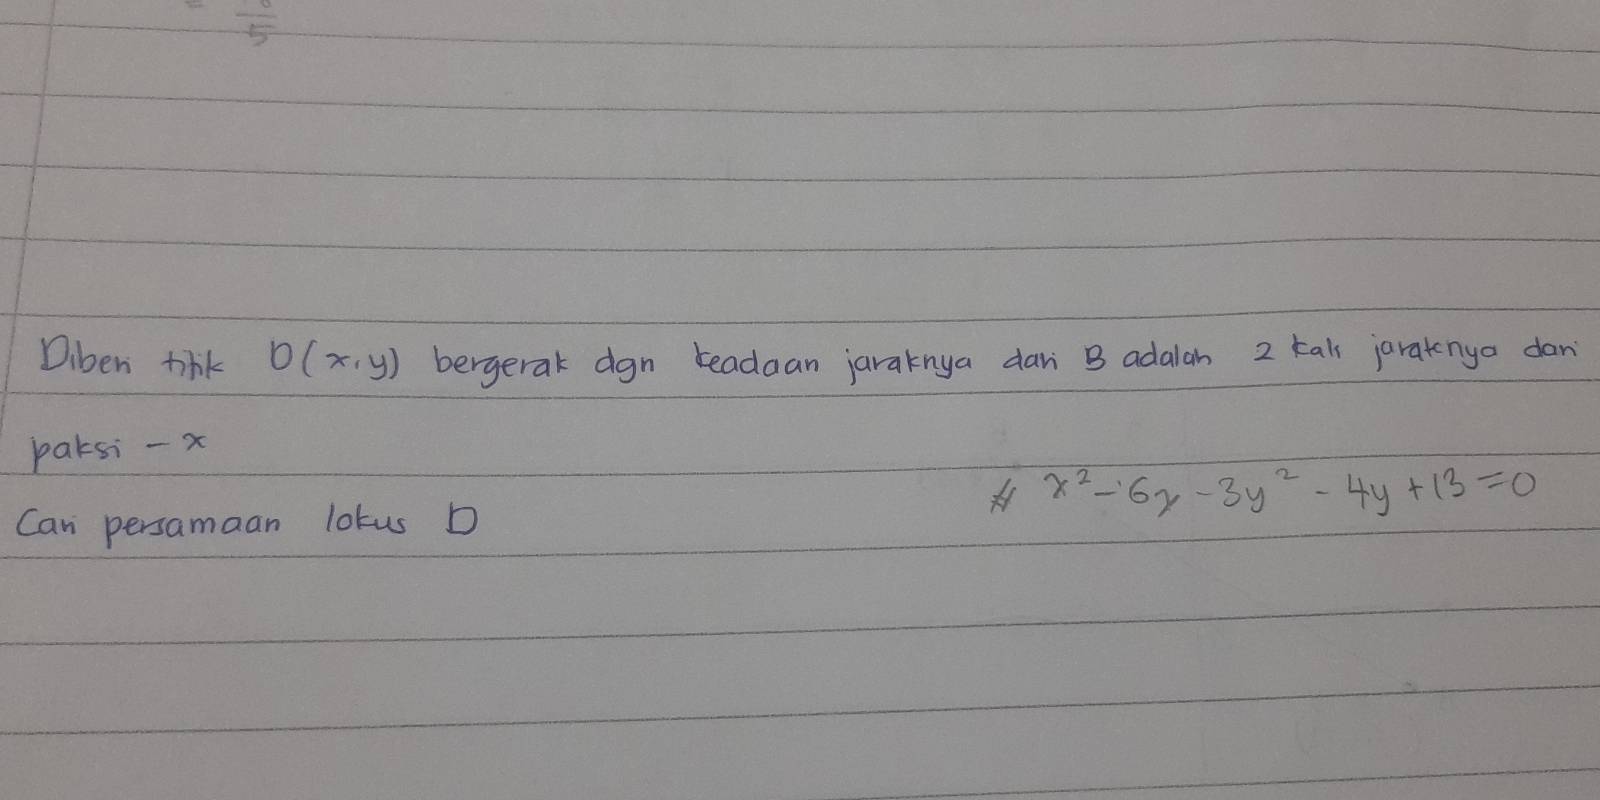 = 5
Diberi titik D(x,y) bergerak dgn keadaan jaraknya dari B adalah 2 kali jaraknya dari
paksi - x
# x² - 6x - 3y² - 4y + 13 = 0
Cari persamaan lokus D